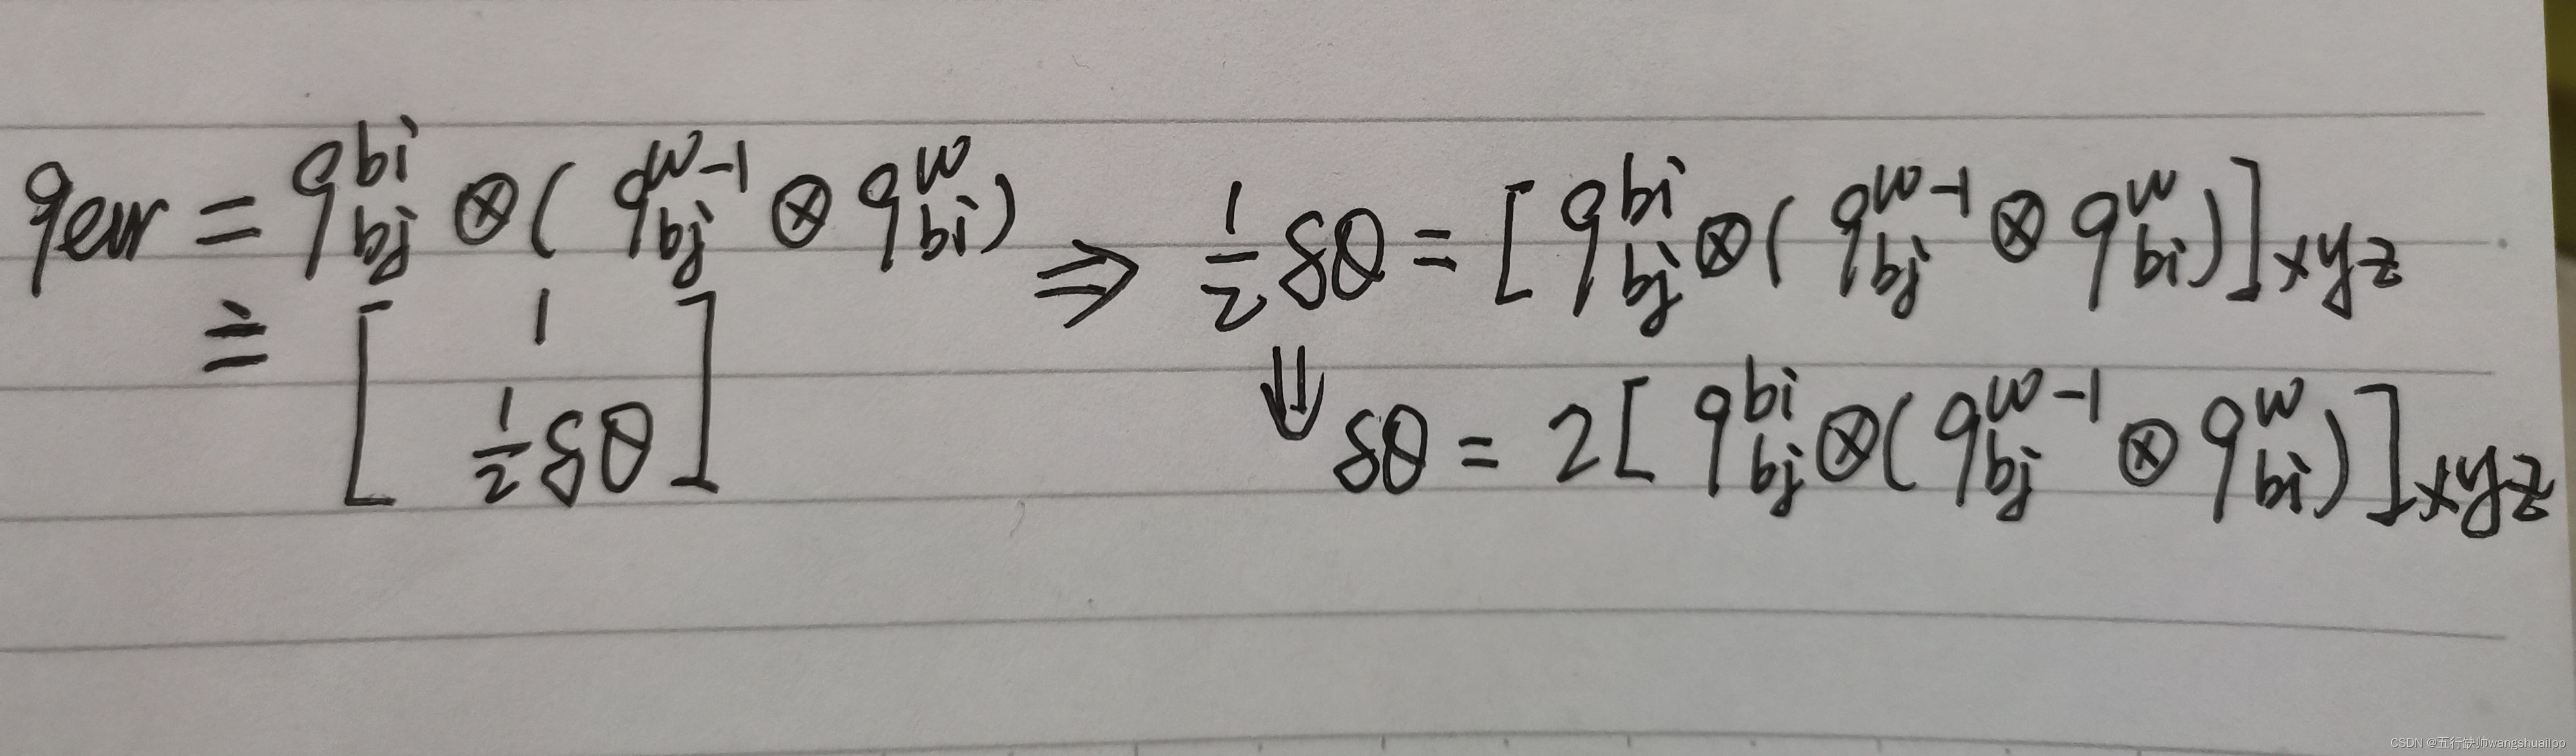 q_{err} = q_{bj}^{bi} ⊗ ( q_{bj}^{w-1} ⊗ q_{bi}^{w} ) ⇒ \frac{1}{2} δθ = [ q_{bj}^{bi} ⊗ ( q_{bj}^{w-1} ⊗ q_{bi}^{w} ) ]_{xyz}
≐ \begin{bmatrix} 1 \\ \frac{1}{2} δθ \end{bmatrix} ⇓ δθ = 2 [ q_{bj}^{bi} ⊗ ( q_{bj}^{w-1} ⊗ q_{bi}^{w} ) ]_{xyz}
CSDN @五行缺帅wangshuailpp